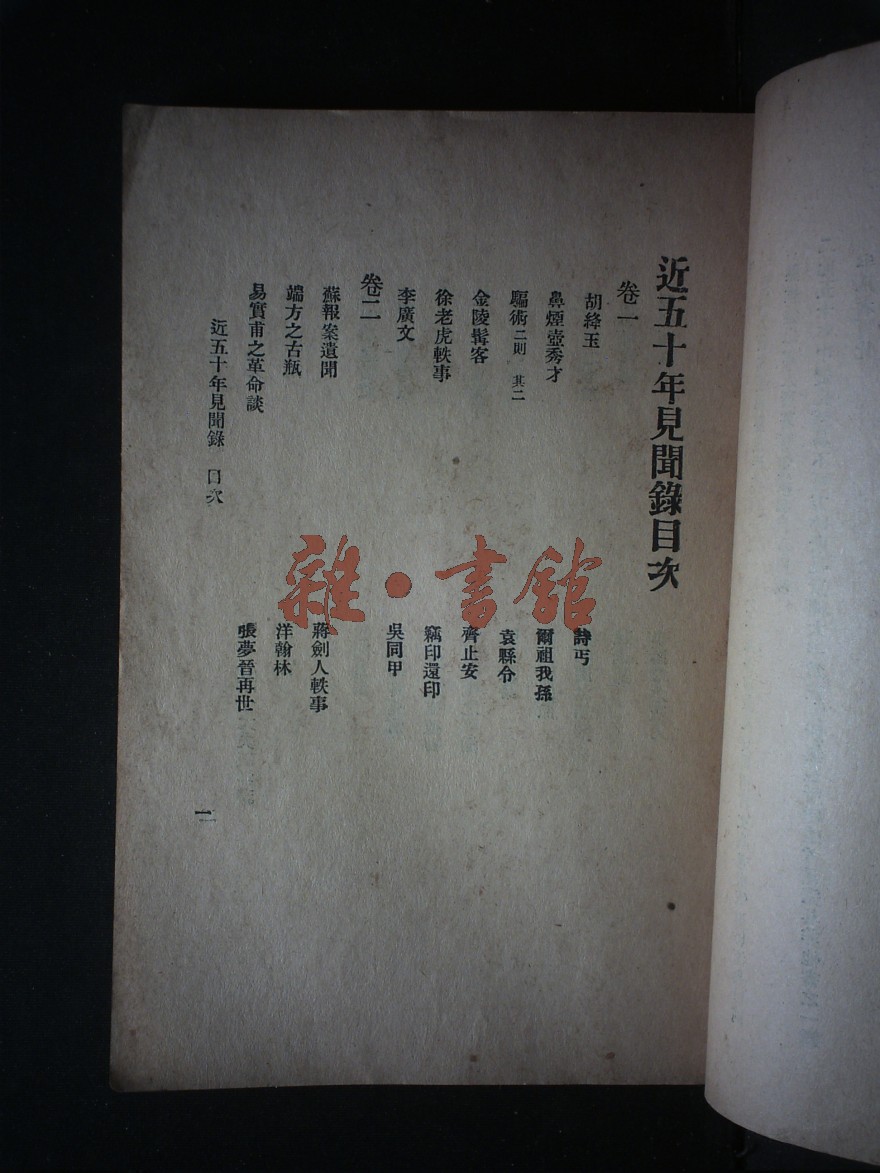 近五十年見聞錄目次
卷一
胡絳玉
詩丐
鼻煙壺秀才
爾祖我孫
騙術二則 其二
袁縣令
金陵髯客
齊止安
徐老虎軼事
竊印還印
李廣文
吳同甲
卷二
蘇報案遺聞
蔣劍人軼事
端方之古瓶
洋翰林
易實甫之革命談
張夢晉再世
近五十年見聞錄 目次
一
雜·書館